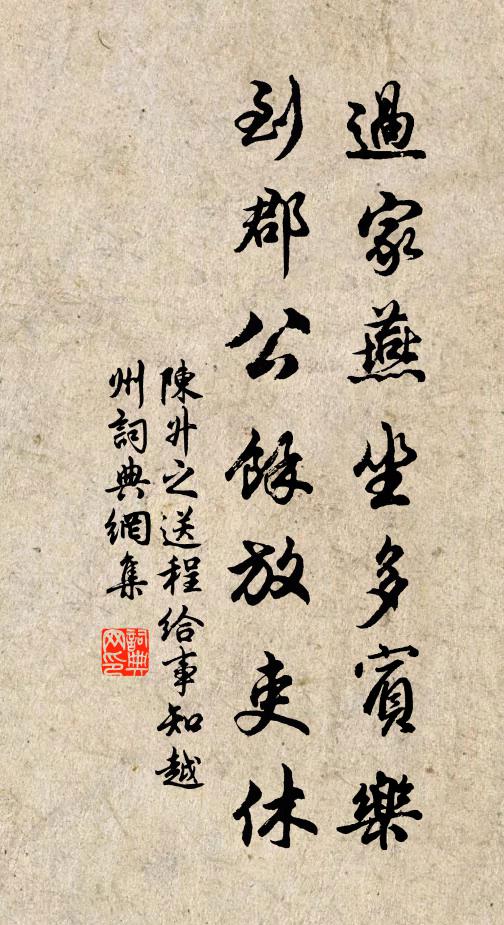 過家燕坐多賓樂
到郡公餘放吏休
陳升之送程給事知越
州詞典網集
詞典
网印